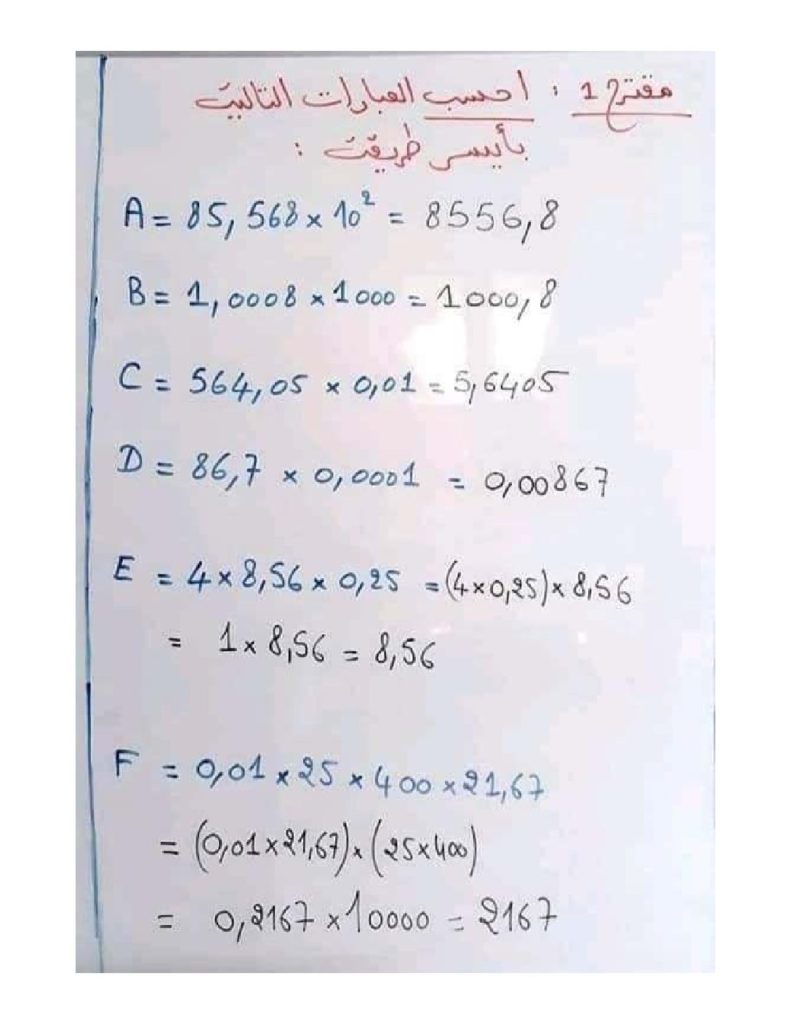 مقترح 1 : احسب العبارات التالية
بأيسر طريقة :
A = 85,568 × 10² = 8556,8
B = 1,0008 × 1000 = 1000,8
C = 564,05 × 0,01 = 5,6405
D = 86,7 × 0,0001 = 0,00867
E = 4 × 8,56 × 0,25 = (4×0,25) × 8,56
= 1 × 8,56 = 8,56
F = 0,01 × 25 × 400 × 21,67
= (0,01 × 21,67) × (25×400)
= 0,2167 × 10000 = 2167